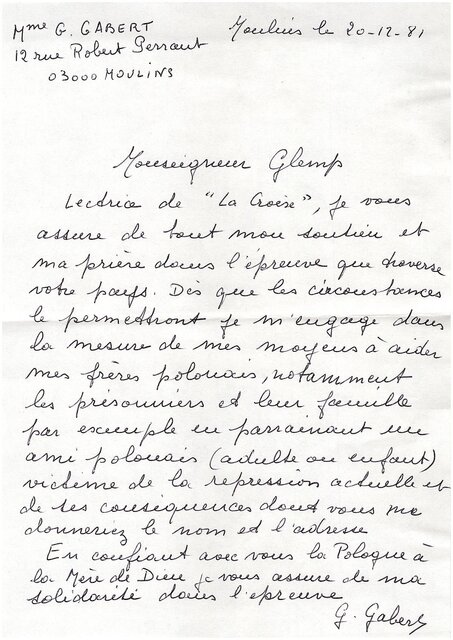 Mme G. GABERT
12 rue Robert Perraut
03000 MOULINS
Moulins le 20-12-81
Monseigneur Glemp
Lectrice de "La Croix", je vous
assure de tout mon soutien et
ma prière dans l'épreuve que traverse
votre pays. Dès que les circonstances
le permettront je m'engage dans
la mesure de mes moyens à aider
mes frères polonais, notamment
les prisonniers et leur famille
par exemple en parrainant un
ami polonais (adulte ou enfant)
victime de la repression actuelle et
de ses conséquences dont vous me
donneriez le nom et l'adresse
En confiant avec vous la Pologne à
la Mère de Dieu je vous assure de ma
solidarité dans l'epreuve
G. Gabert